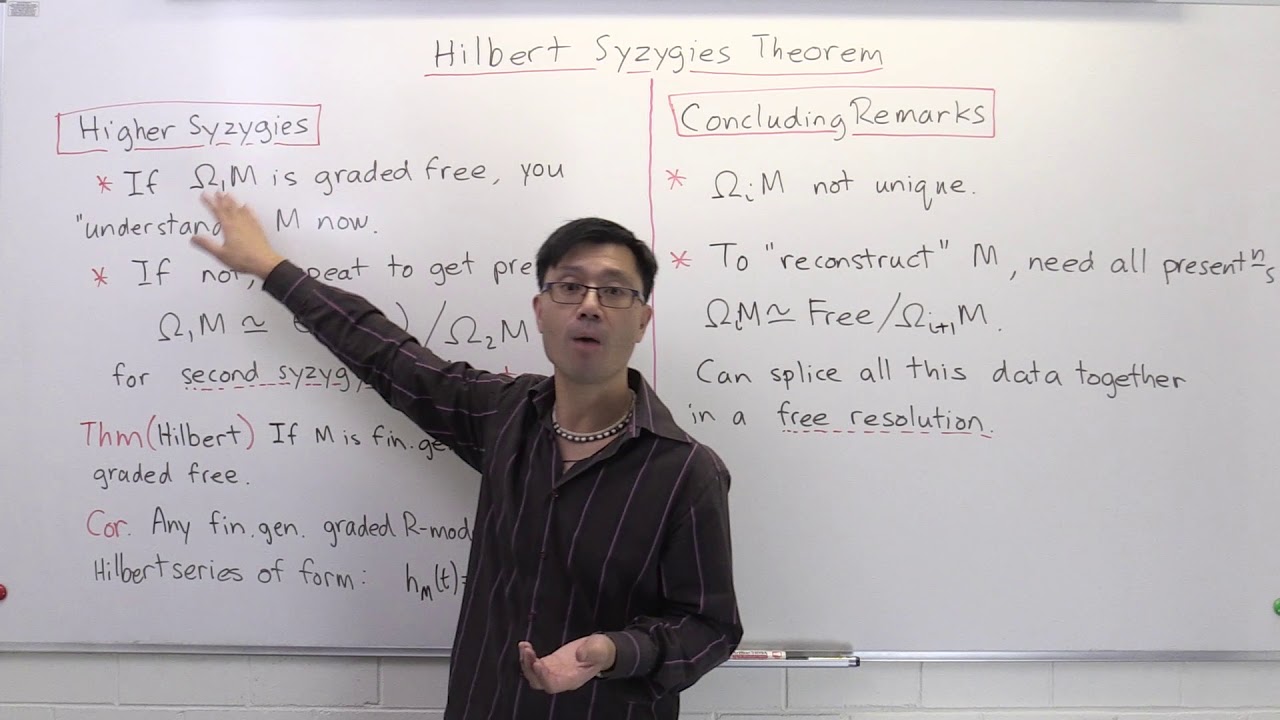 Hilbert Syzygies Theorem
Higher Syzygies
* If Ω₁M is graded free, you
"understand" M now.
* If not, repeat to get
Ω₁M ≃ /Ω₂M
for second syzygy
Thm (Hilbert) If M is fin.
graded free.
Cor. Any fin.gen. graded
Hilbert series of form: h_M(t)=
Concluding Remarks
* ΩᵢM not unique.
* To "reconstruct" M, need all presentⁿs
ΩᵢM ≃ Free/Ωᵢ₊₁M.
Can splice all this data together
in a free resolution.